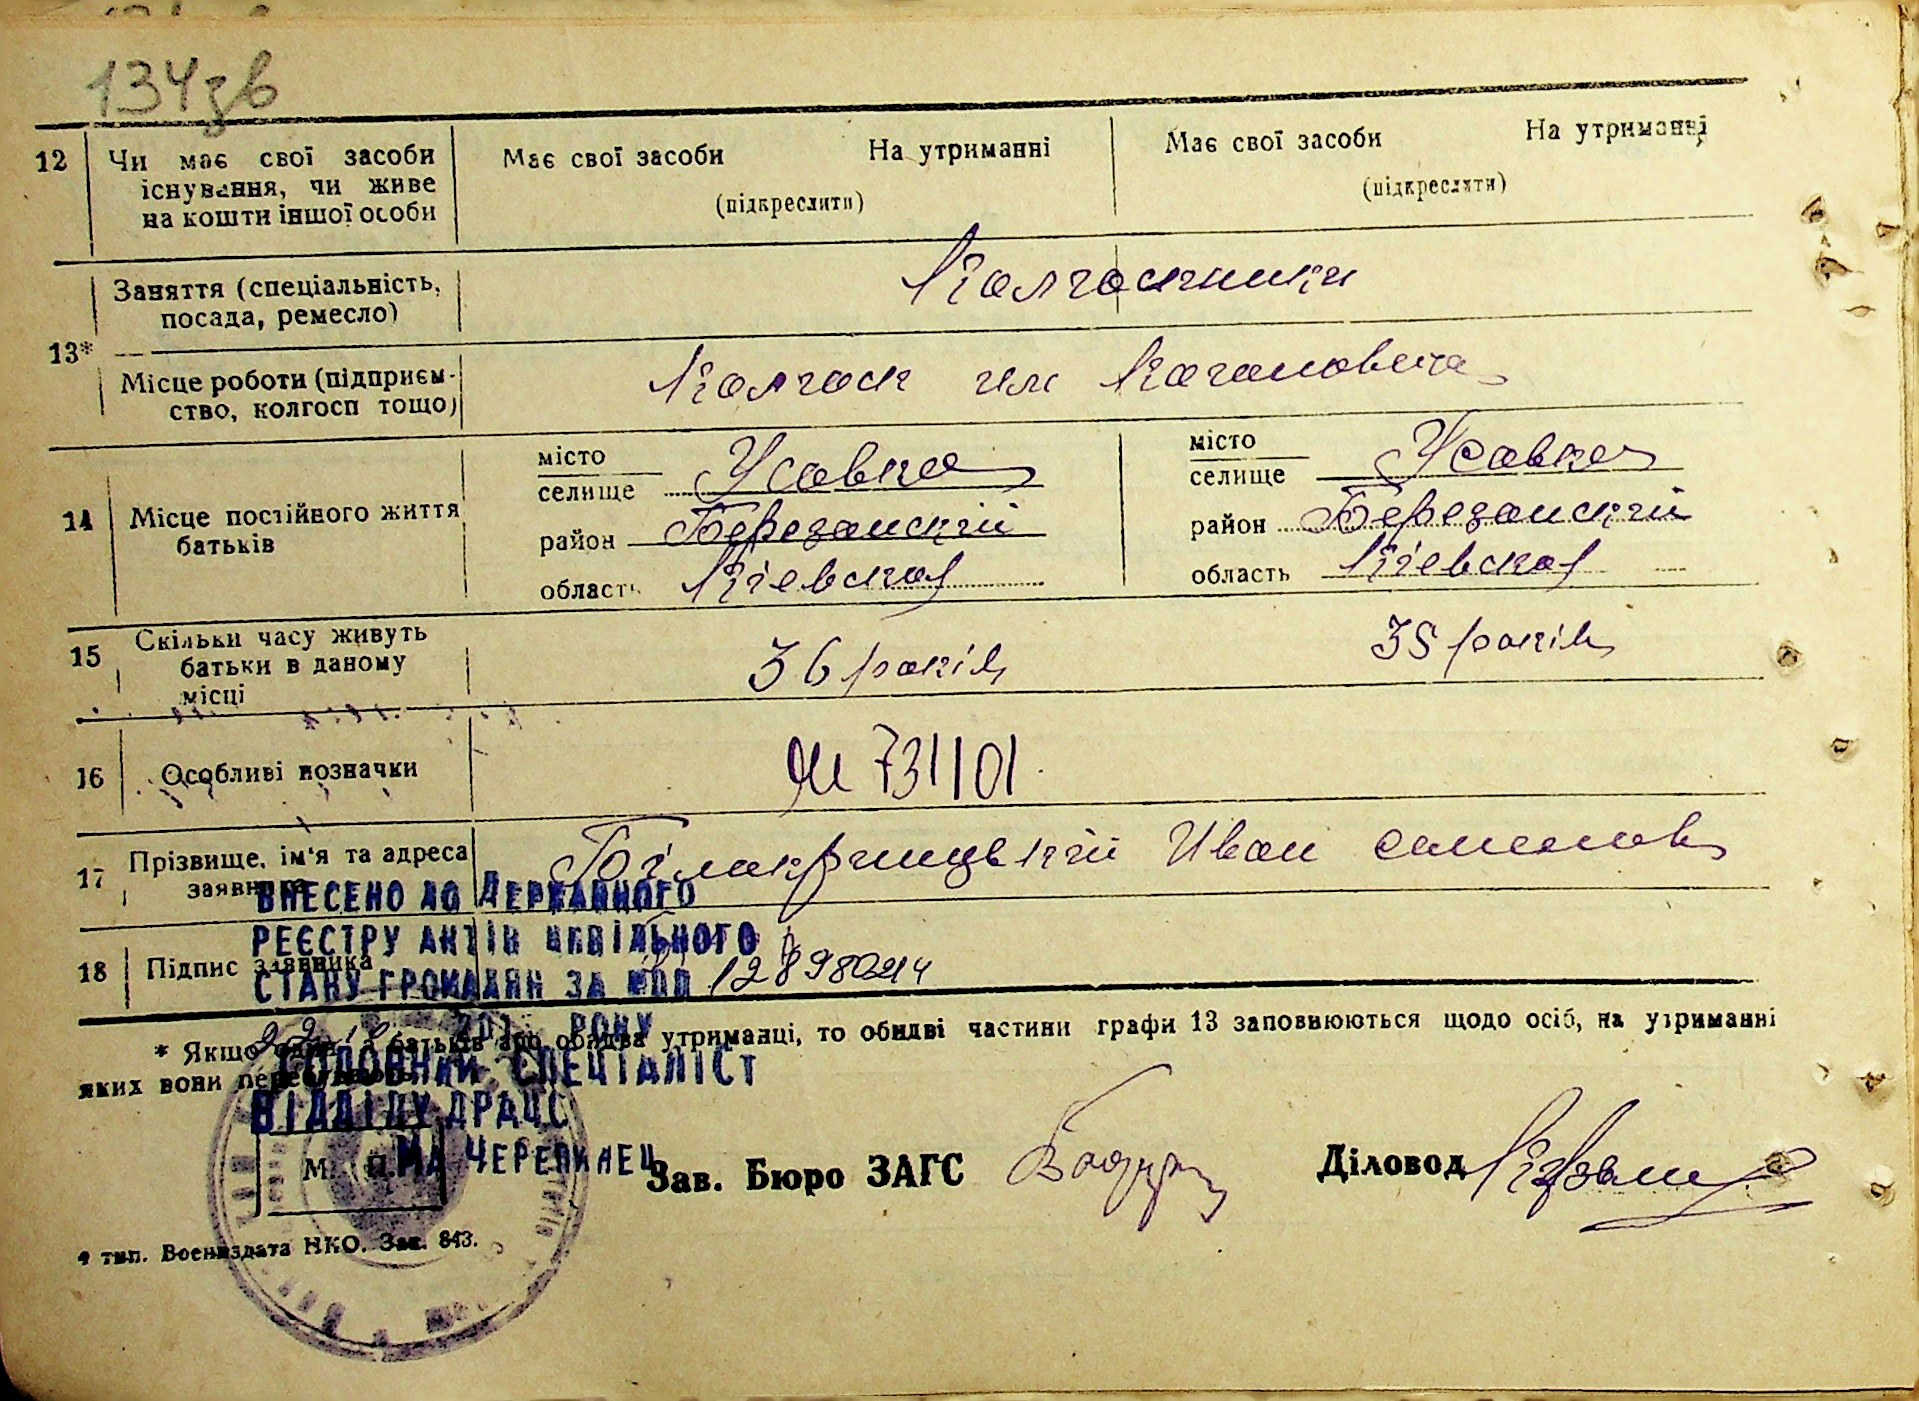 134зв
12 Чи має свої засоби існування, чи живе на кошти іншої особи
Має свої засоби На утриманні
(підкреслити)
Має свої засоби На утриманні
(підкреслити)
13* Заняття (спеціальність, посада, ремесло)
Колгоспники
Місце роботи (підприєм-
ство, колгосп тощо)
Колгосп им Кагановича
14 Місце постійного життя батьків
місто
селище Усавка
район Березанский
область Киевская
місто
селище Усавка
район Березанский
область Киевская
15 Скільки часу живуть батьки в даному місці
36 років
35 років
16 Особливі позначки
731101
17 Прізвище, ім'я та адреса заявника
Иван
18 Підпис заявника
ВНЕСЕНО ДО ДЕРЖАВНОГО
РЕЄСТРУ АКТІВ ЦИВІЛЬНОГО
СТАНУ ГРОМАДЯН ЗА
РОКУ
ГОЛОВНИЙ СПЕЦІАЛІСТ
ВІДДІЛУ ДРАЦС
* Якщо батьків або обидва утриманці, то обидві частини графи 13 заповнюються щодо осіб, на утриманні
яких вони
М. П.
Зав. Бюро ЗАГС
Діловод
тип. Воениздата НКО. Зак. 843.